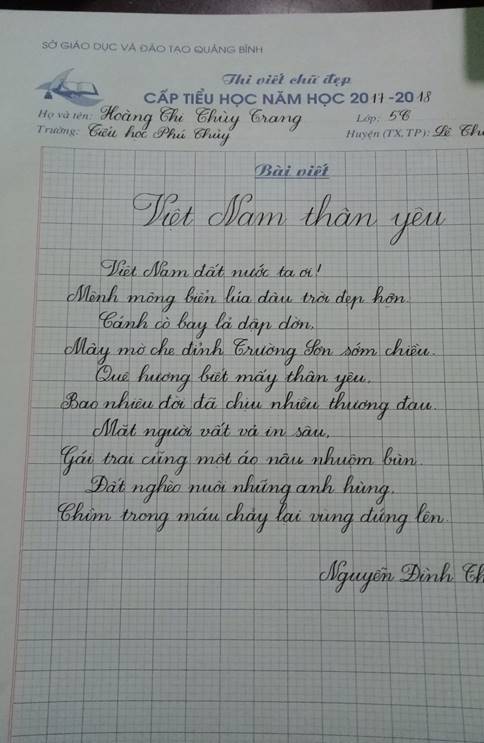 SỞ GIÁO DỤC VÀ ĐÀO TẠO QUẢNG BÌNH
Thi viết chữ đẹp
CẤP TIỂU HỌC NĂM HỌC 2017-2018
Họ và tên: Hoàng Thị Thùy Trang Lớp: 5C
Trường: Tiểu học Phú Thủy Huyện (TX, TP): Lệ
Bài viết
Việt Nam thân yêu
Việt Nam đất nước ta ơi!
Mênh mông biển lúa đâu trời đẹp hơn.
Cánh cò bay lả dập dờn,
Mây mờ che đỉnh Trường Sơn sớm chiều.
Quê hương biết mấy thân yêu,
Bao nhiêu đời đã chịu nhiều thương đau.
Mặt người vất vả in sâu,
Gái trai cũng một áo nâu nhuộm bùn.
Đất nghèo nuôi những anh hùng,
Chìm trong máu chảy lại vùng đứng lên.
Nguyễn Đình